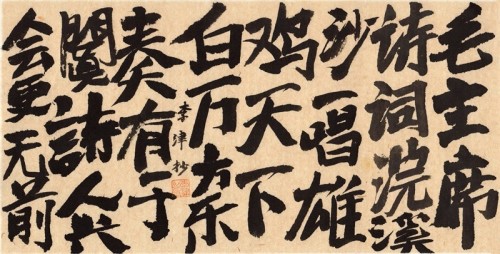 毛主席
诗词浣溪
沙一唱雄
鸡天下
白万方乐
奏有于
闐詩人兴
会更无前
李津抄